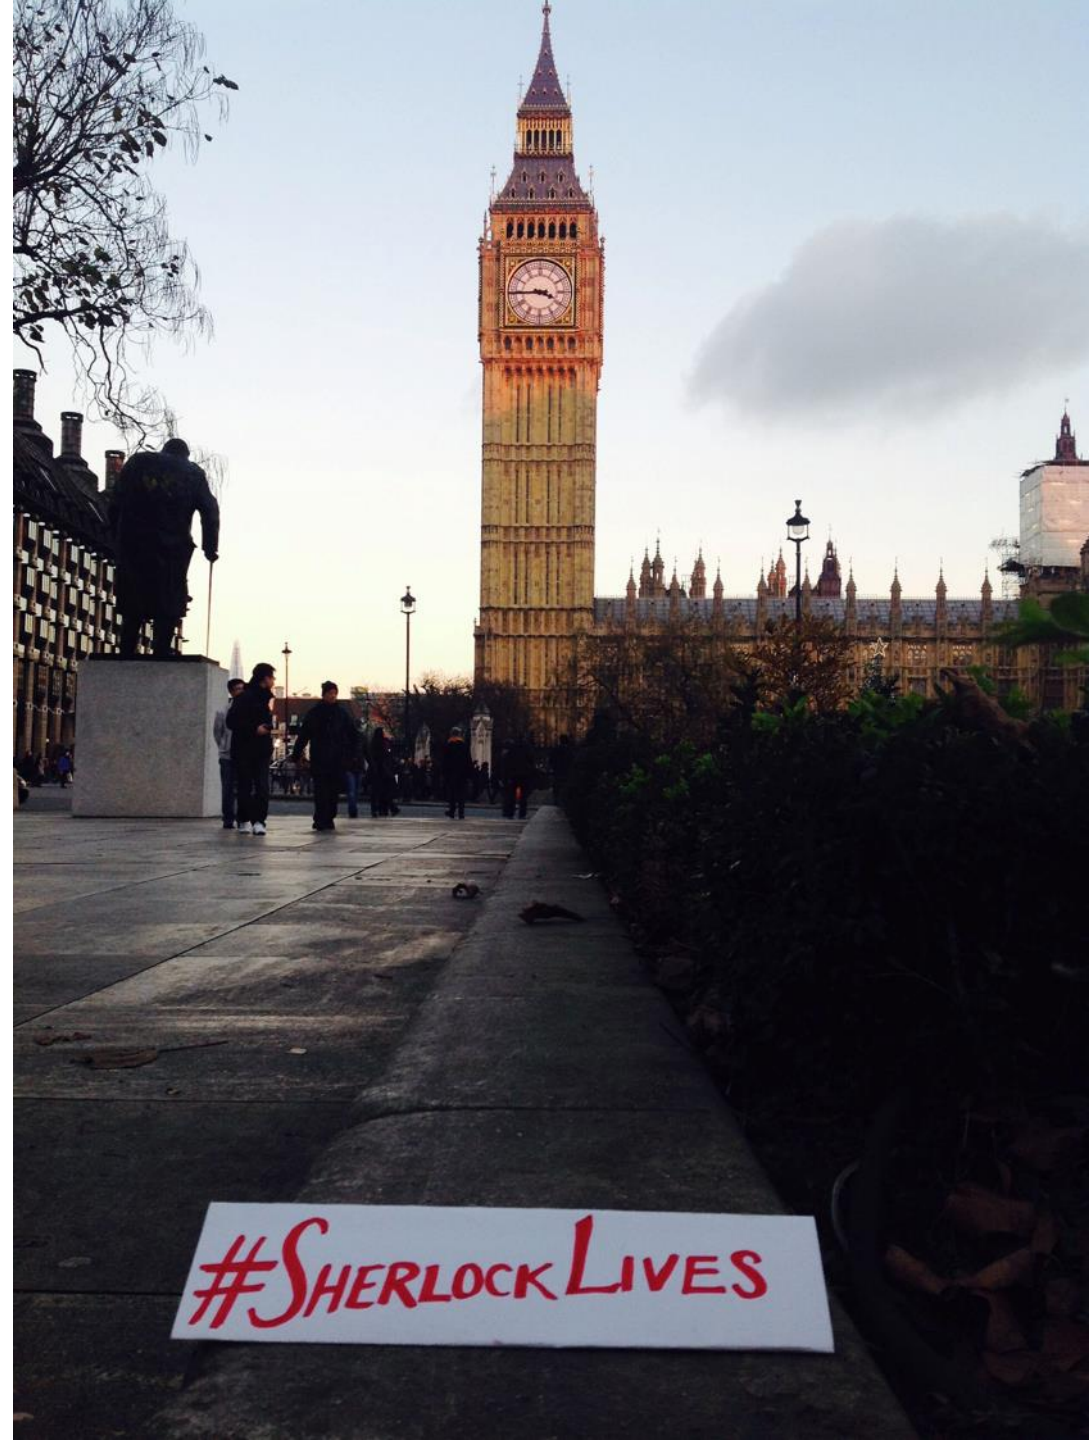 #SHERLOCK LIVES